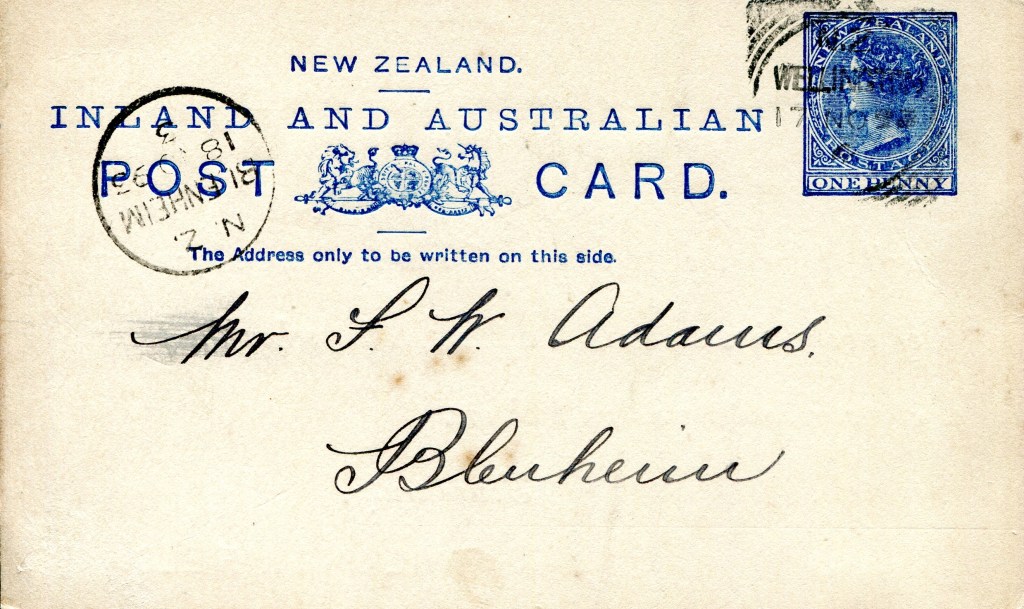 NEW ZEALAND.
INLAND AND AUSTRALIAN
POST CARD.
The Address only to be written on this side.
NEW ZEALAND
POSTAGE
ONE PENNY
17 NO
BLENHEIM
N.Z.
18
Mr. F. W. Adams.
Blenheim